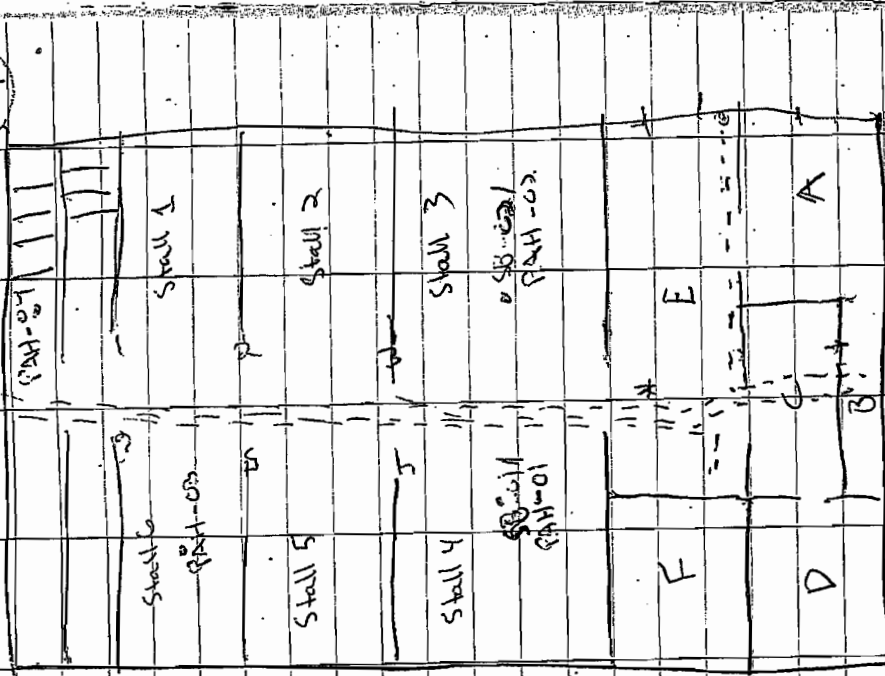 PAH-04
Stall 1
Stall 2
Stall 3
PAH-02
E
A
C
B
Stall 6
PAH-03
Stall 5
Stall 4
PAH-01
F
D